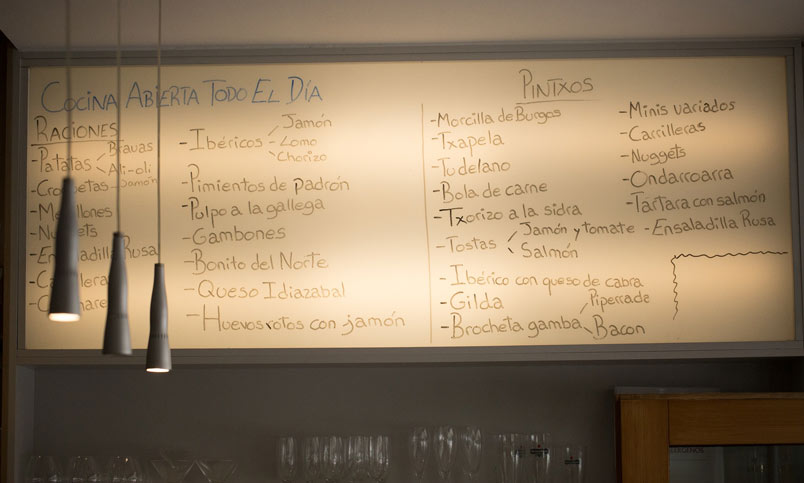 COCINA ABIERTA TODO EL DÍA
RACIONES
-Patatas
Bravas
Ali-oli
Jamón
-Ibéricos
Jamón
Lomo
Chorizo
-Pimientos de padrón
-Pulpo a la gallega
-Gambones
-Bonito del Norte
-Queso Idiazabal
-Huevos rotos con jamón
PINTXOS
-Morcilla de Burgos
-Txapela
-Tudelano
-Bola de carne
-Txorizo a la sidra
-Tostas
Jamón y tomate
Salmón
-Ibérico con queso de cabra
-Gilda
-Brocheta gamba
Piperrade
Bacon
-Minis variados
-Carrilleras
-Nuggets
-Ondarroarra
-Tártara con salmón
-Ensaladilla Rusa